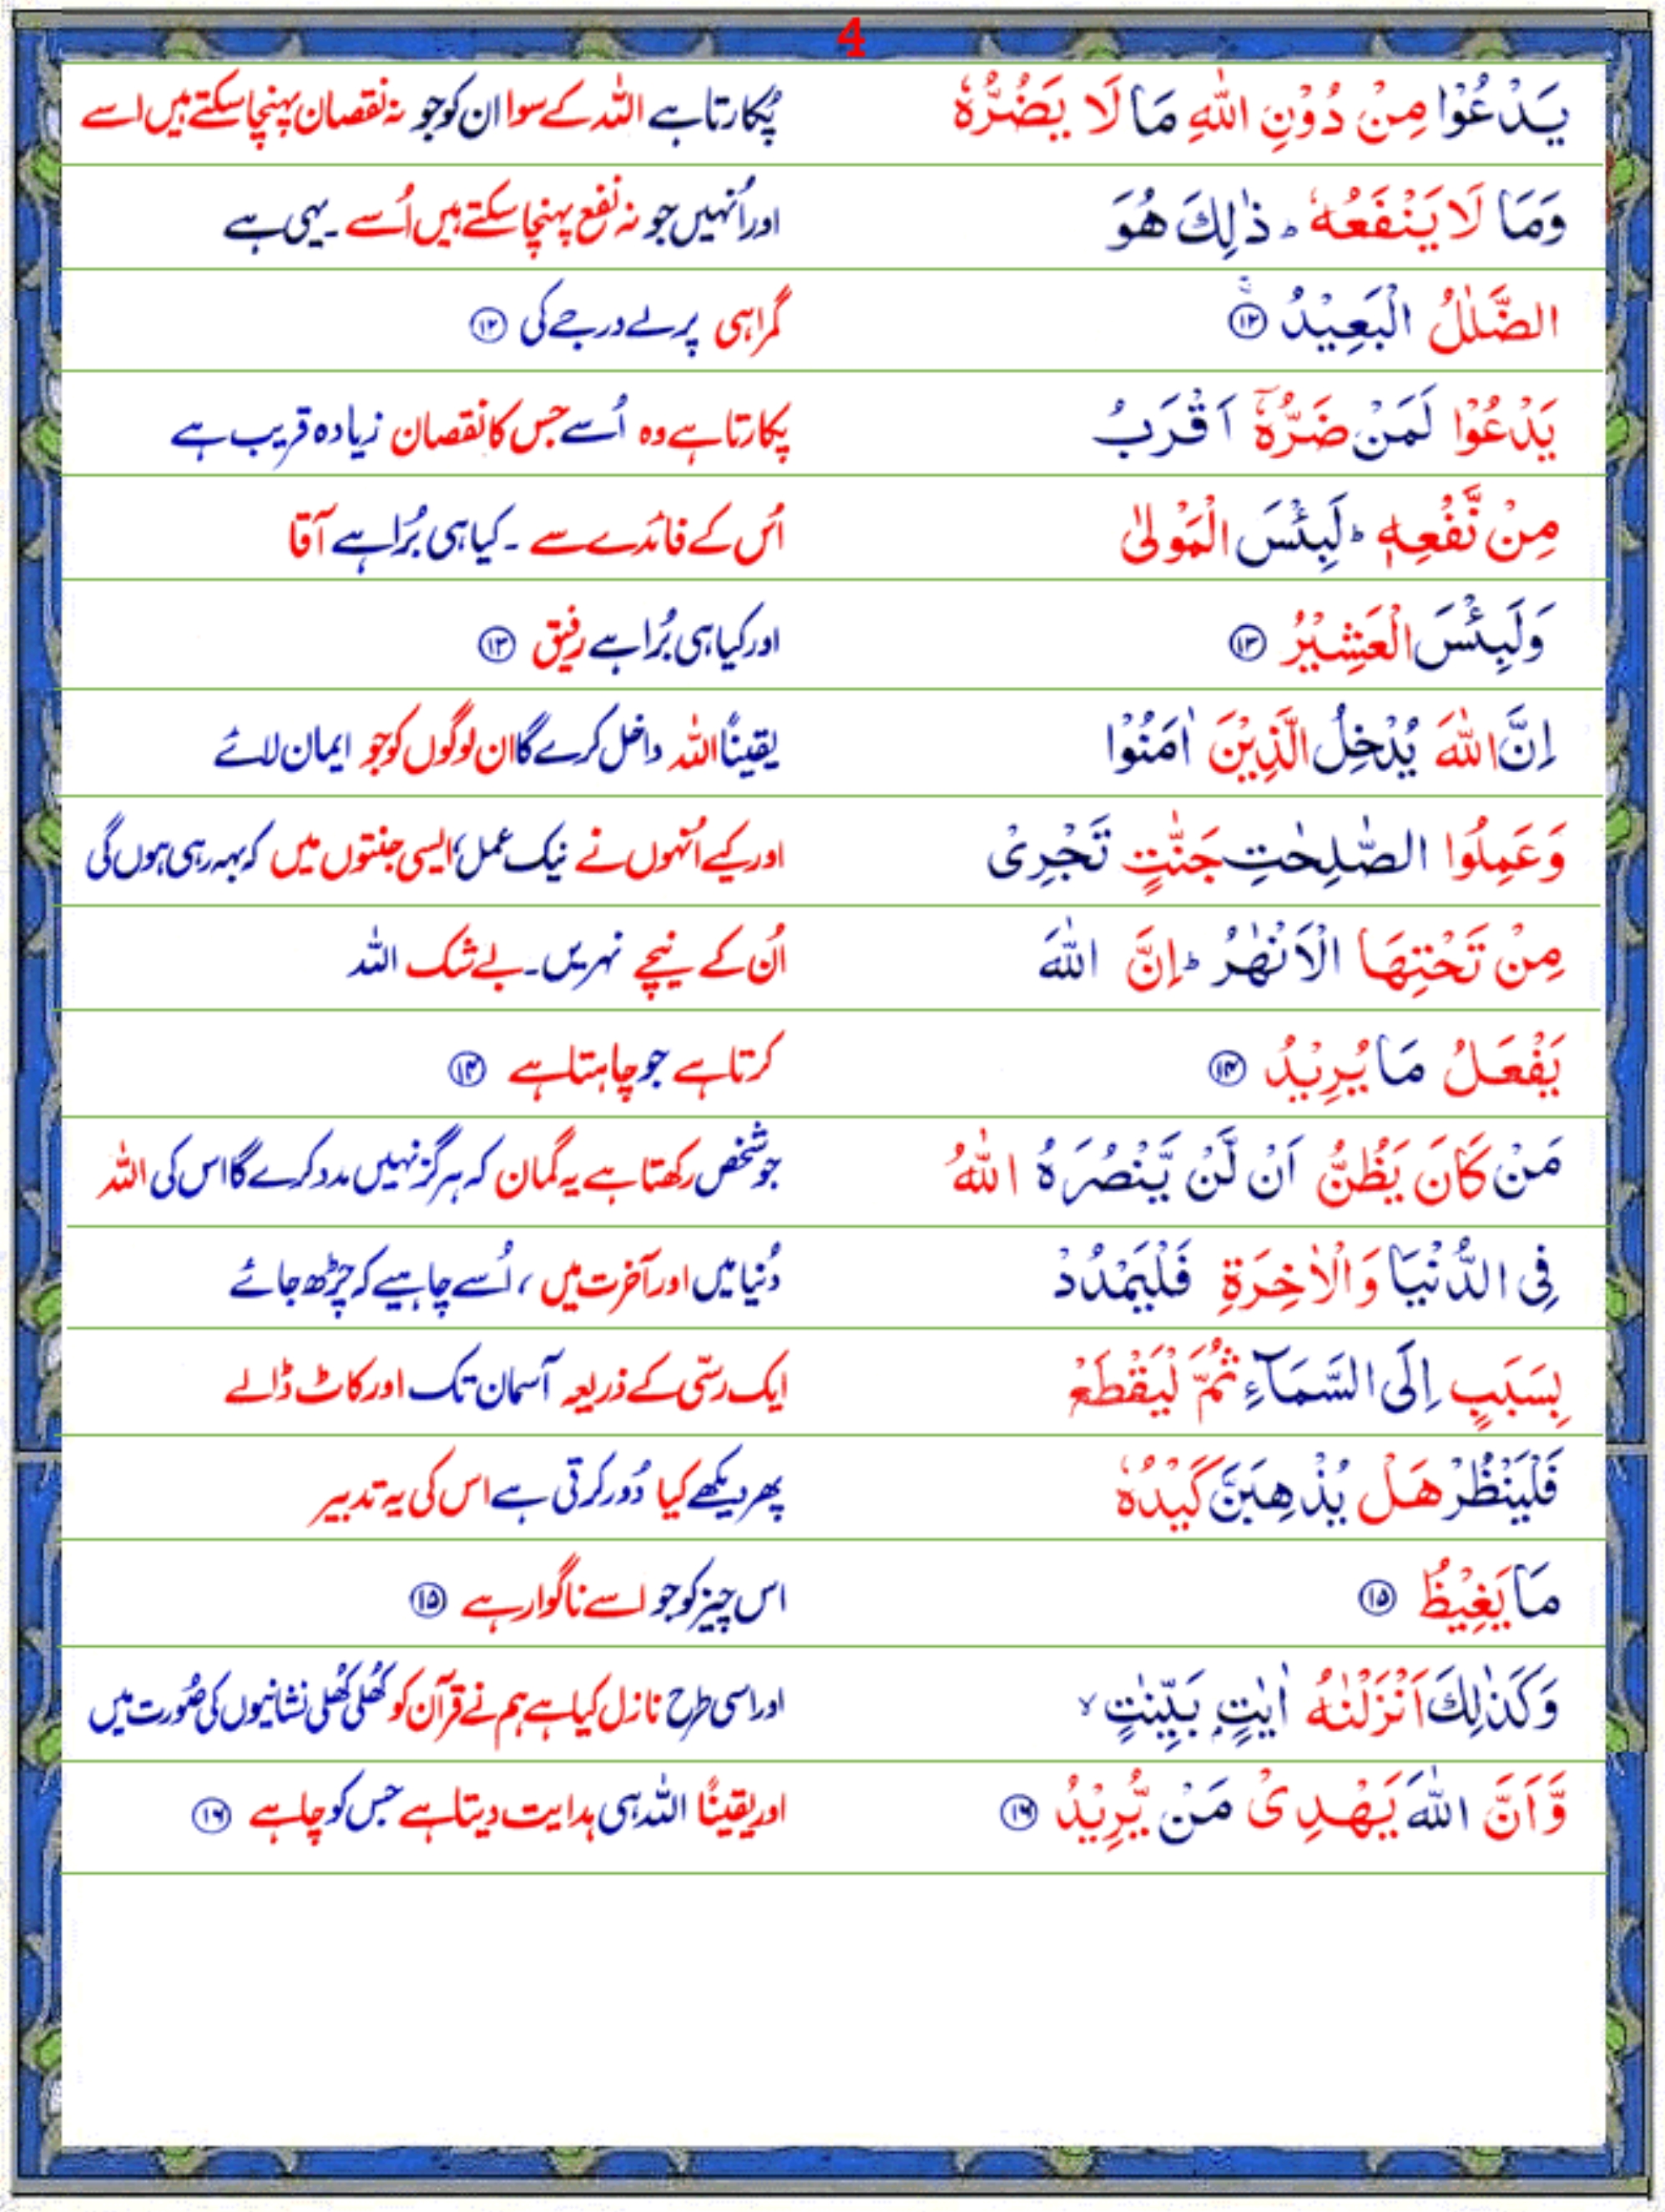 4
يَدْعُوْا مِنْ دُوْنِ اللّٰهِ مَا لَا يَضُرُّهٗ
پُکارتا ہے اللہ کے سوا ان کو جو نہ نقصان پہنچا سکتے ہیں اسے
وَمَا لَا يَنْفَعُهٗ ؕ ذٰلِكَ هُوَ
اور اُنہیں جو نہ نفع پہنچا سکتے ہیں اُسے ۔ یہی ہے
الضَّلٰلُ الْبَعِيْدُ ۚ ﴿۱۲﴾
گمراہی پرلے درجے کی ﴿۱۲﴾
يَدْعُوْا لَمَنْ ضَرُّهٗۤ اَقْرَبُ
پکارتا ہے وہ اُسے جس کا نقصان زیادہ قریب ہے
مِنْ نَّفْعِهٖ ؕ لَبِئْسَ الْمَوْلٰى
اُس کے فائدے سے ۔ کیا ہی بُرا ہے آقا
وَلَبِئْسَ الْعَشِيْرُ ﴿۱۳﴾
اور کیا ہی بُرا ہے رفیق ﴿۱۳﴾
اِنَّ اللّٰهَ يُدْخِلُ الَّذِيْنَ اٰمَنُوْا
یقیناً اللہ داخل کرے گا ان لوگوں کو جو ایمان لائے
وَعَمِلُوا الصّٰلِحٰتِ جَنّٰتٍ تَجْرِىْ
اور کیے اُنہوں نے نیک عمل، ایسی جنتوں میں کہ بہہ رہی ہوں گی
مِنْ تَحْتِهَا الْاَنْهٰرُ ؕ اِنَّ اللّٰهَ
اُن کے نیچے نہریں ۔ بے شک اللہ
يَفْعَلُ مَا يُرِيْدُ ﴿۱۴﴾
کرتا ہے جو چاہتا ہے ﴿۱۴﴾
مَنْ كَانَ يَظُنُّ اَنْ لَّنْ يَّنْصُرَهُ اللّٰهُ
جو شخص رکھتا ہے یہ گمان کہ ہرگز نہیں مدد کرے گا اس کی اللہ
فِى الدُّنْيَا وَالْاٰخِرَةِ فَلْيَمْدُدْ
دُنیا میں اور آخرت میں ، اُسے چاہیے کہ چڑھ جائے
بِسَبَبٍ اِلَى السَّمَآءِ ثُمَّ لْيَقْطَعْ
ایک رسّی کے ذریعہ آسمان تک اور کاٹ ڈالے
فَلْيَنْظُرْ هَلْ يُذْهِبَنَّ كَيْدُهٗ
پھر دیکھے کیا دُور کرتی ہے اس کی یہ تدبیر
مَا يَغِيْظُ ﴿۱۵﴾
اس چیز کو جو اسے ناگوار ہے ﴿۱۵﴾
وَكَذٰلِكَ اَنْزَلْنٰهُ اٰيٰتٍۭ بَيِّنٰتٍ ۙ
اور اسی طرح نازل کیا ہے ہم نے قرآن کو کھُلی کھُلی نشانیوں کی صُورت میں
وَّاَنَّ اللّٰهَ يَهْدِىْ مَنْ يُّرِيْدُ ﴿۱۶﴾
اور یقیناً اللہ ہی ہدایت دیتا ہے جس کو چاہے ﴿۱۶﴾